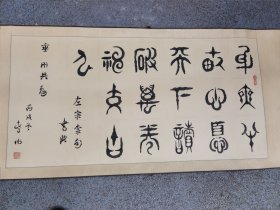 身無半
畝心憂
天下讀
破萬卷
神交古
人
左宗棠句
書與
共勉
丙戌冬